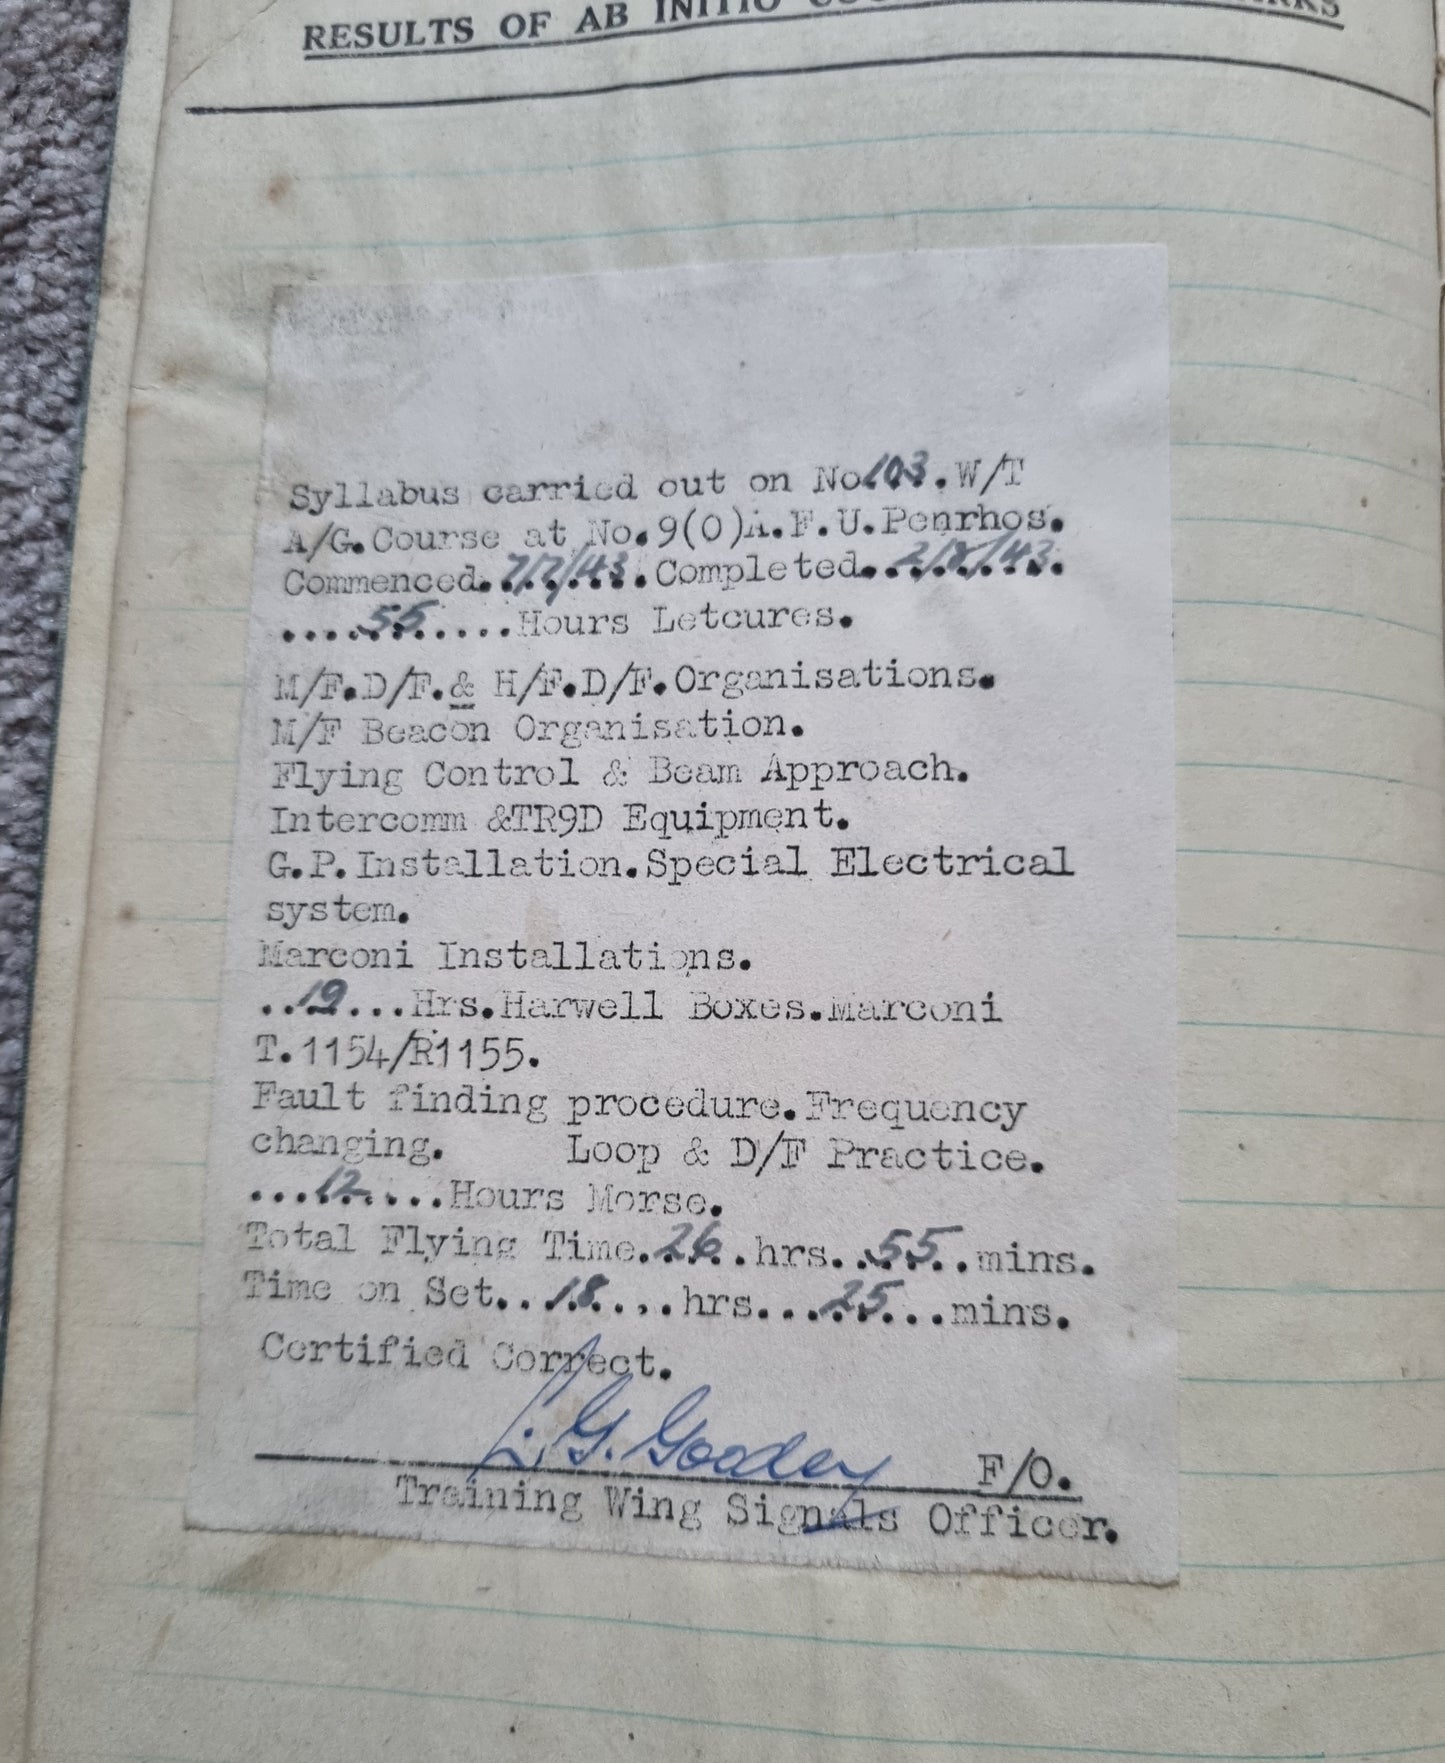 RESULTS OF AB INITIO
Syllabus carried out on No103.W/T
A/G.Course at No.9(O)A.F.U.Penrhos.
Commenced.7/7/43.Completed..2/8/43.
....55.....Hours Letcures.
M/F.D/F.& H/F.D/F.Organisations.
M/F Beacon Organisation.
Flying Control & Beam Approach.
Intercomm &TR9D Equipment.
G.P.Installation.Special Electrical
system.
Marconi Installations.
..19...Hrs.Harwell Boxes.Marconi
T.1154/R1155.
Fault finding procedure.Frequency
changing. Loop & D/F Practice.
...12.....Hours Morse.
Total Flying Time.26..hrs..55..mins.
Time on Set..18....hrs...25...mins.
Certified Correct.
G. Goodey F/O.
Training Wing Signals Officer.